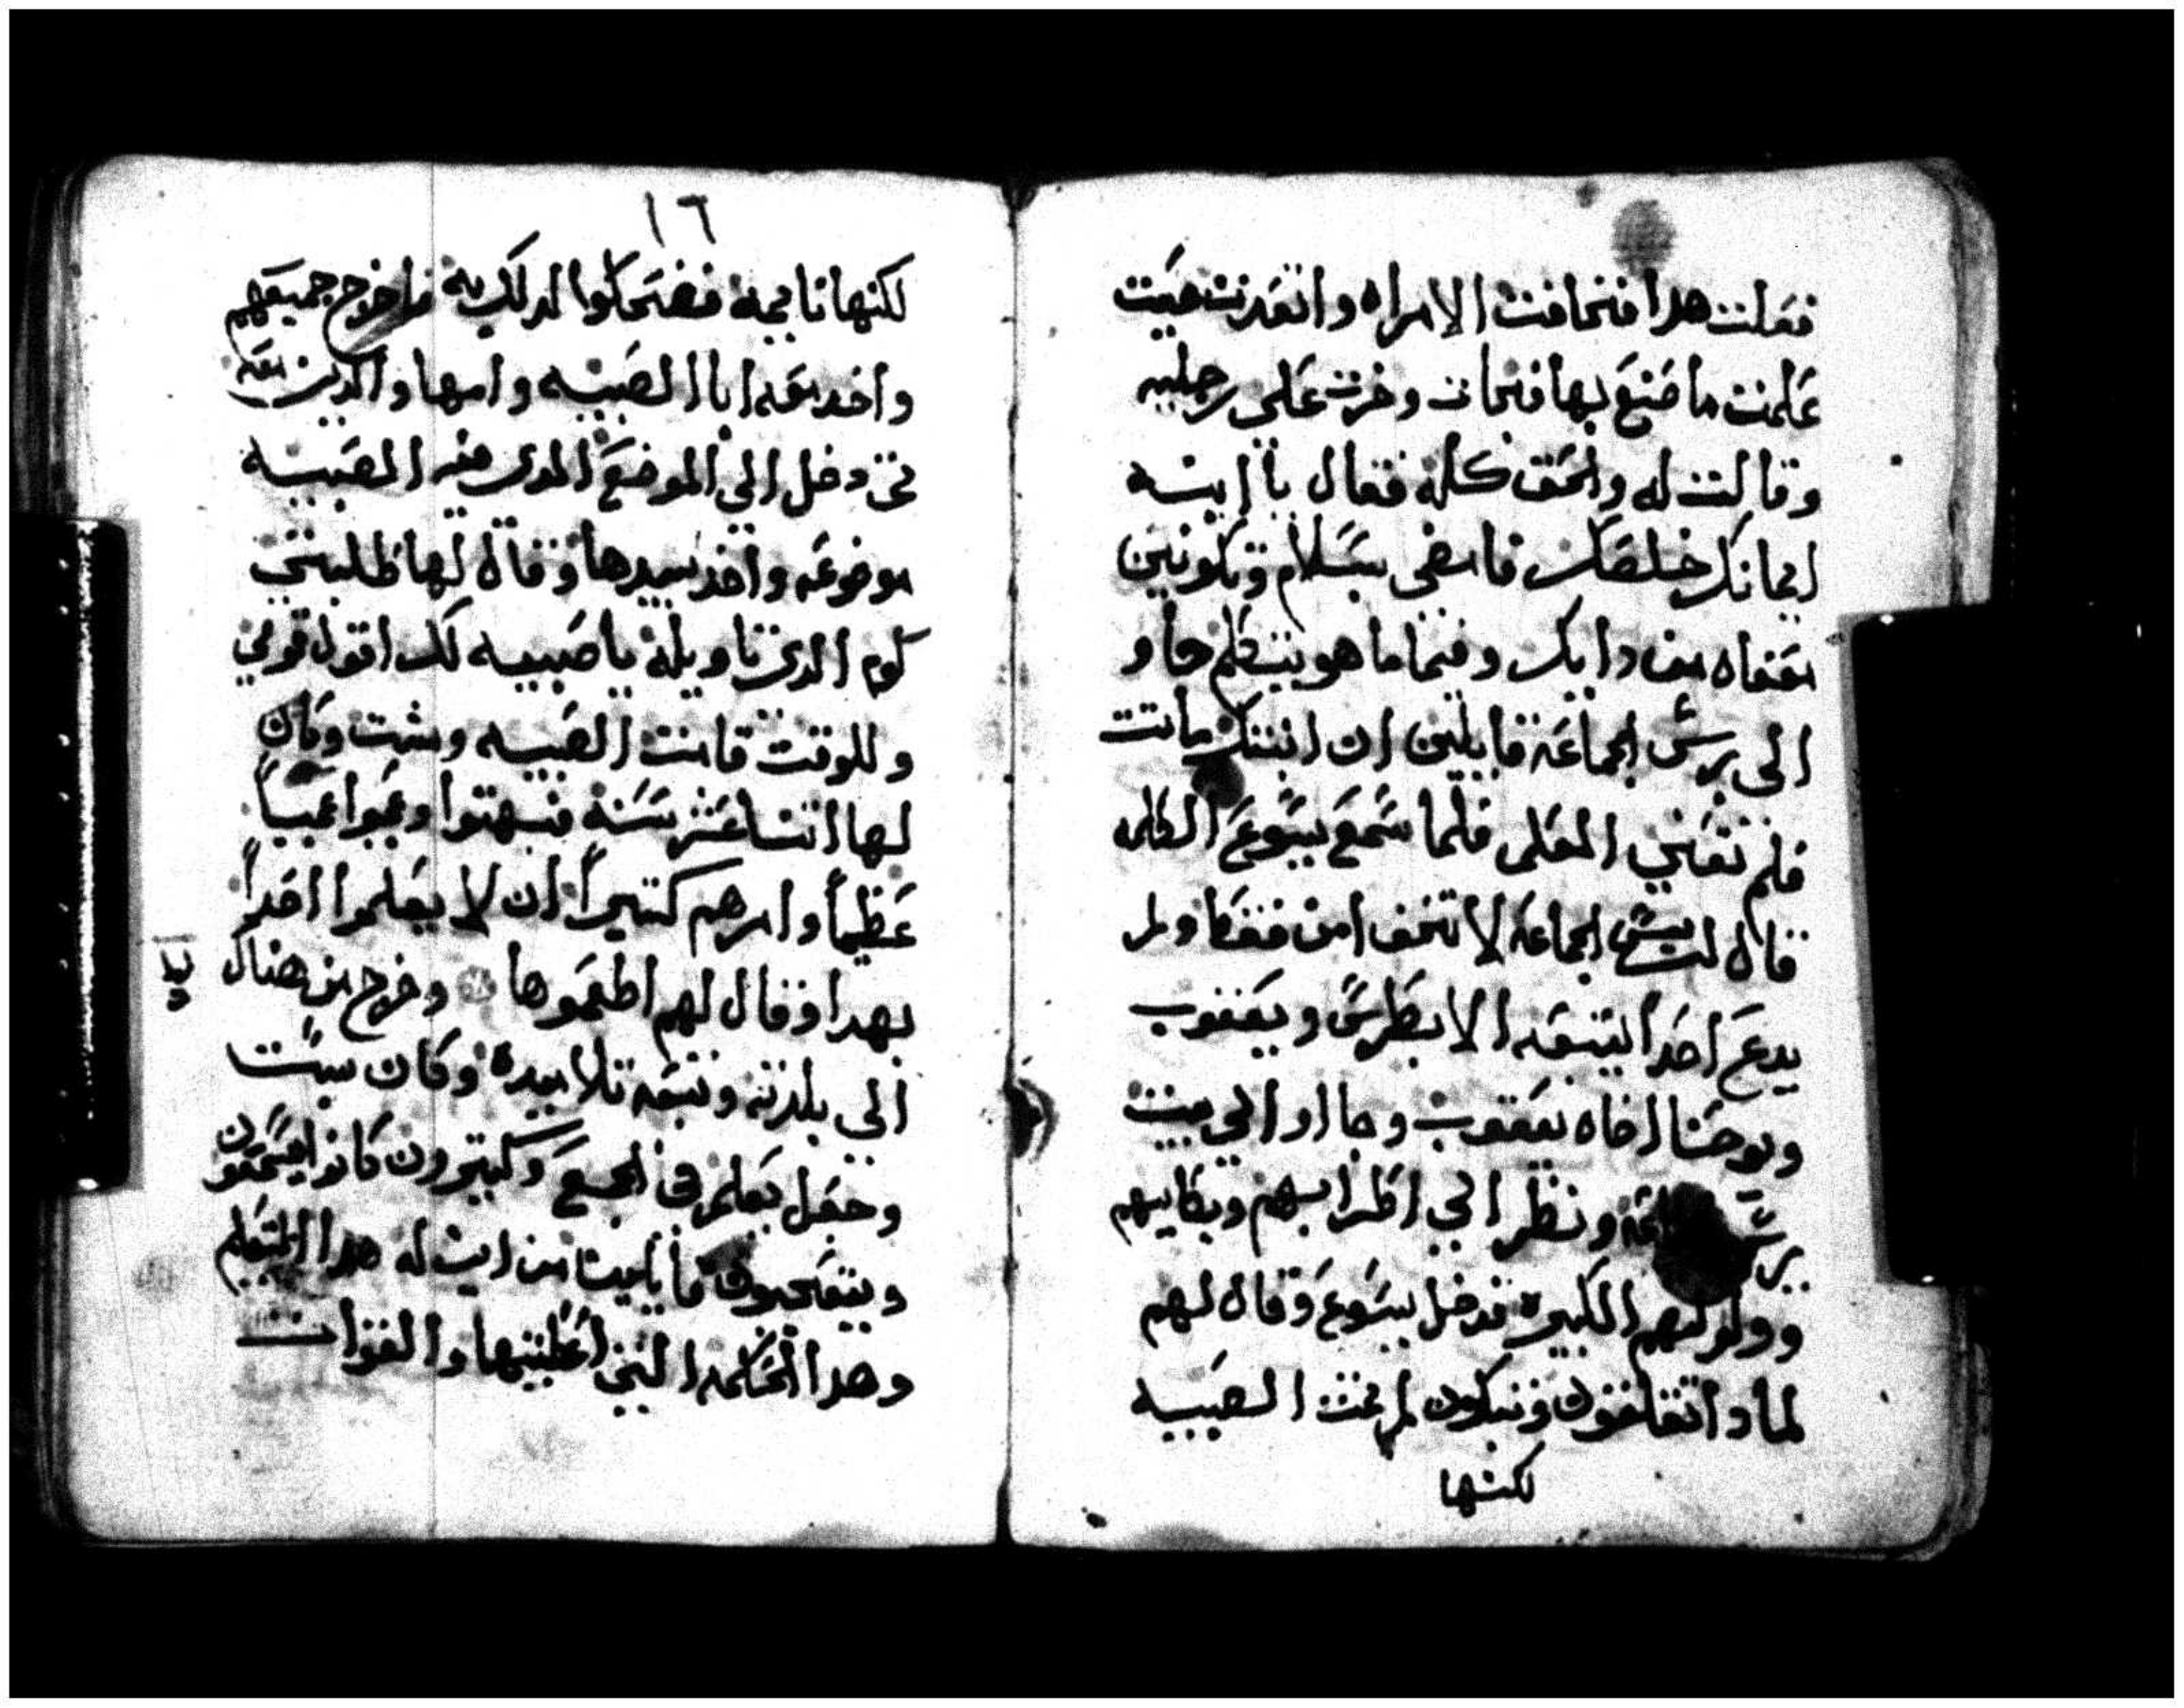 فعلت هدا فخافت الامراه وانعدرت حيت
علمت ما صنع بها فجات وخرت على رجليه
وقالت له والحق كله فقال يا ابنه
ايمانك خلصك فامضى بسلام وتكونين
معفاه من دايك وفيما هو يتكلم جاو
الى ريس الجماعه قايلين ان ابنتك ماتت
فلم تعني المعلم فلما سمع يسوع الكلمه
قال لريس الجماعه لا تخف امن فقط ولم
يدع احداً يتبعه الا بطرس ويعقوب
ويوحنا اخاه يعقوب وجااوا الي بيت
ونظر الي اظرابهم وبكايهم
وولولتهم الكبيره فدخل يسوع وقال لهم
لمادا تقلقون وتبكون لم تمت الصبيه
لكنها
١٦
لكنها نايمه فضحكوا لدلك به فاخرج جميعهم
واخد معه ابا الصبيه وامها والدين معه
تم دخل الى الموضع الدى فيه الصبيه
موضوعه واخد بيدها وقال لها طليتي
قوم الدى تاويله يا صبيه لك اقول قومي
وللوقت قامت الصبيه ومشت وكان
لها اتنتا عشر سنه فبهتوا وعجبوا عجباً
عظيماً وامرهم كتيراً ان لا يعلموا احداً
بهدا وقال لهم اطعموها وخرج من هناك
الي بلدته وتبعه تلاميده وكان سبت
وجعل يعلم في المجمع وكتيرون كانوا يسمعون
ويتعجبون قايلين من اين له هدا التعليم
وهدا الحكمه التي اعطيتها والقوات